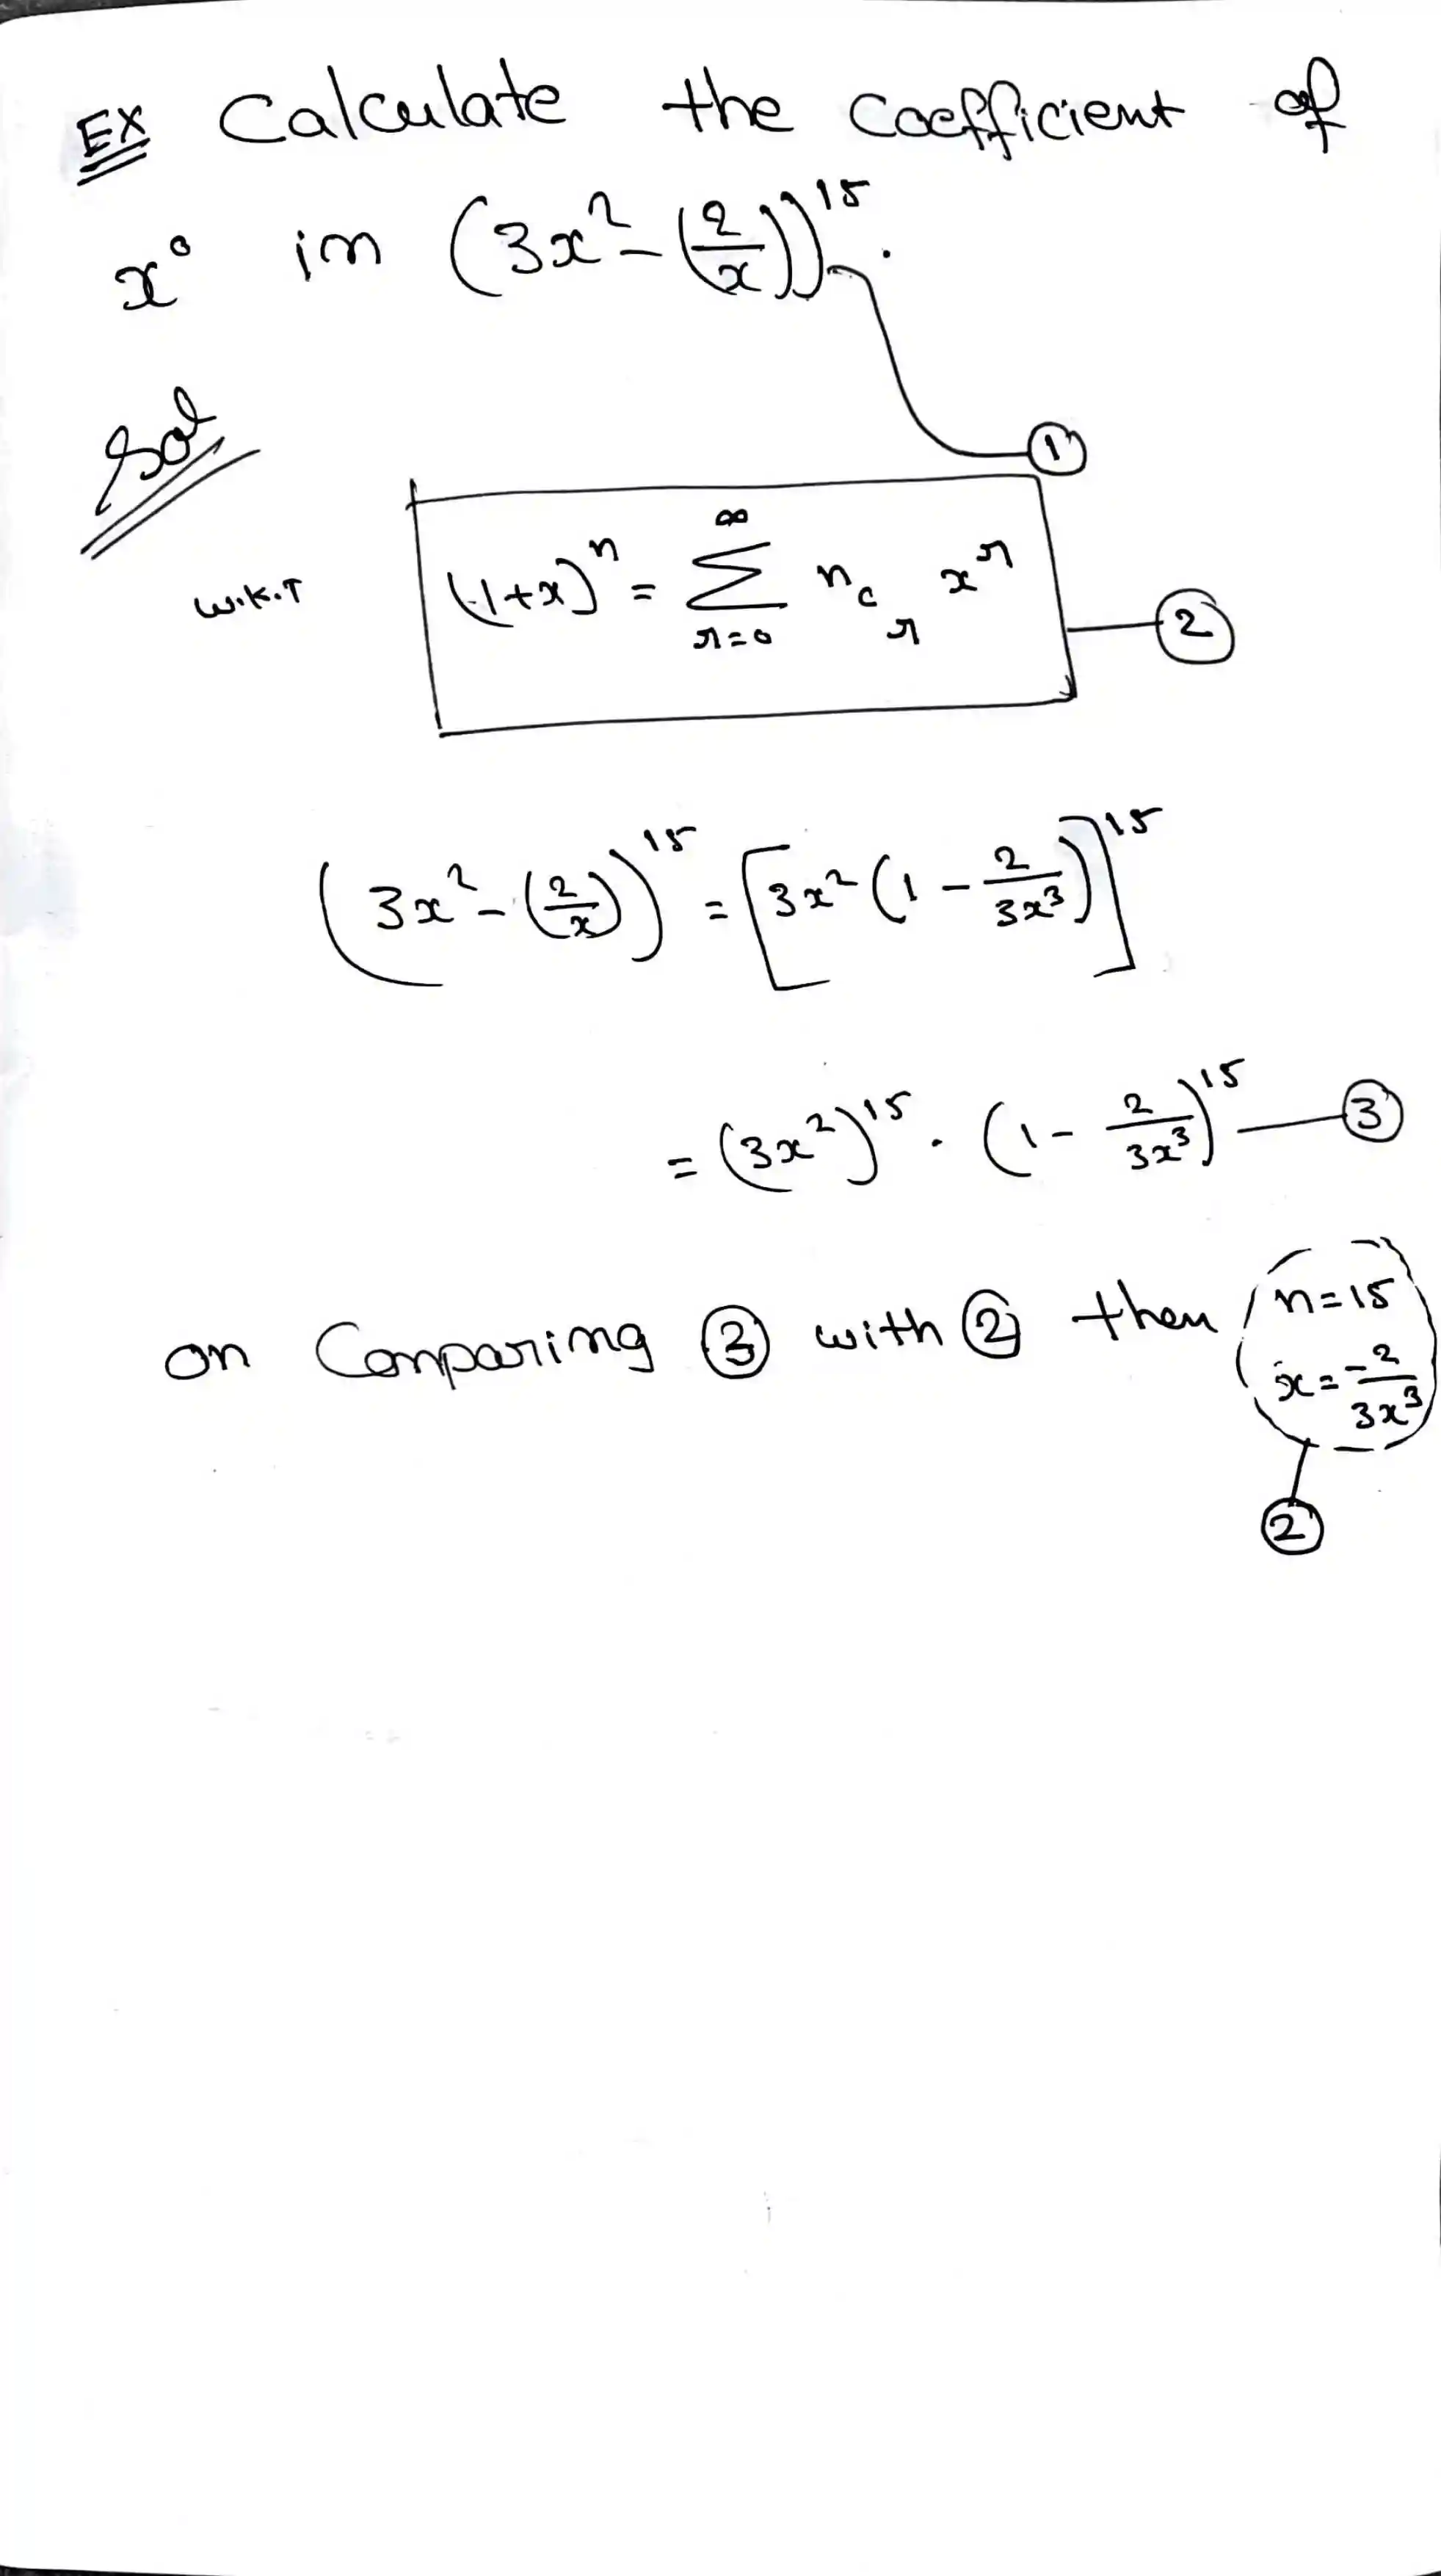 EX Calculate the coefficient of
x⁰ in (3x² - (2/x))¹⁵.
①
Sol
w.k.T (1+x)ⁿ = ∑_{r=0}^{∞} n_c_r x^r ②
(3x² - (2/x))¹⁵ = [3x² (1 - 2/3x³)]¹⁵
= (3x²)¹⁵ . (1 - 2/3x³)¹⁵ ③
on Comparing ③ with ② then n=15
x = -2/3x³
②